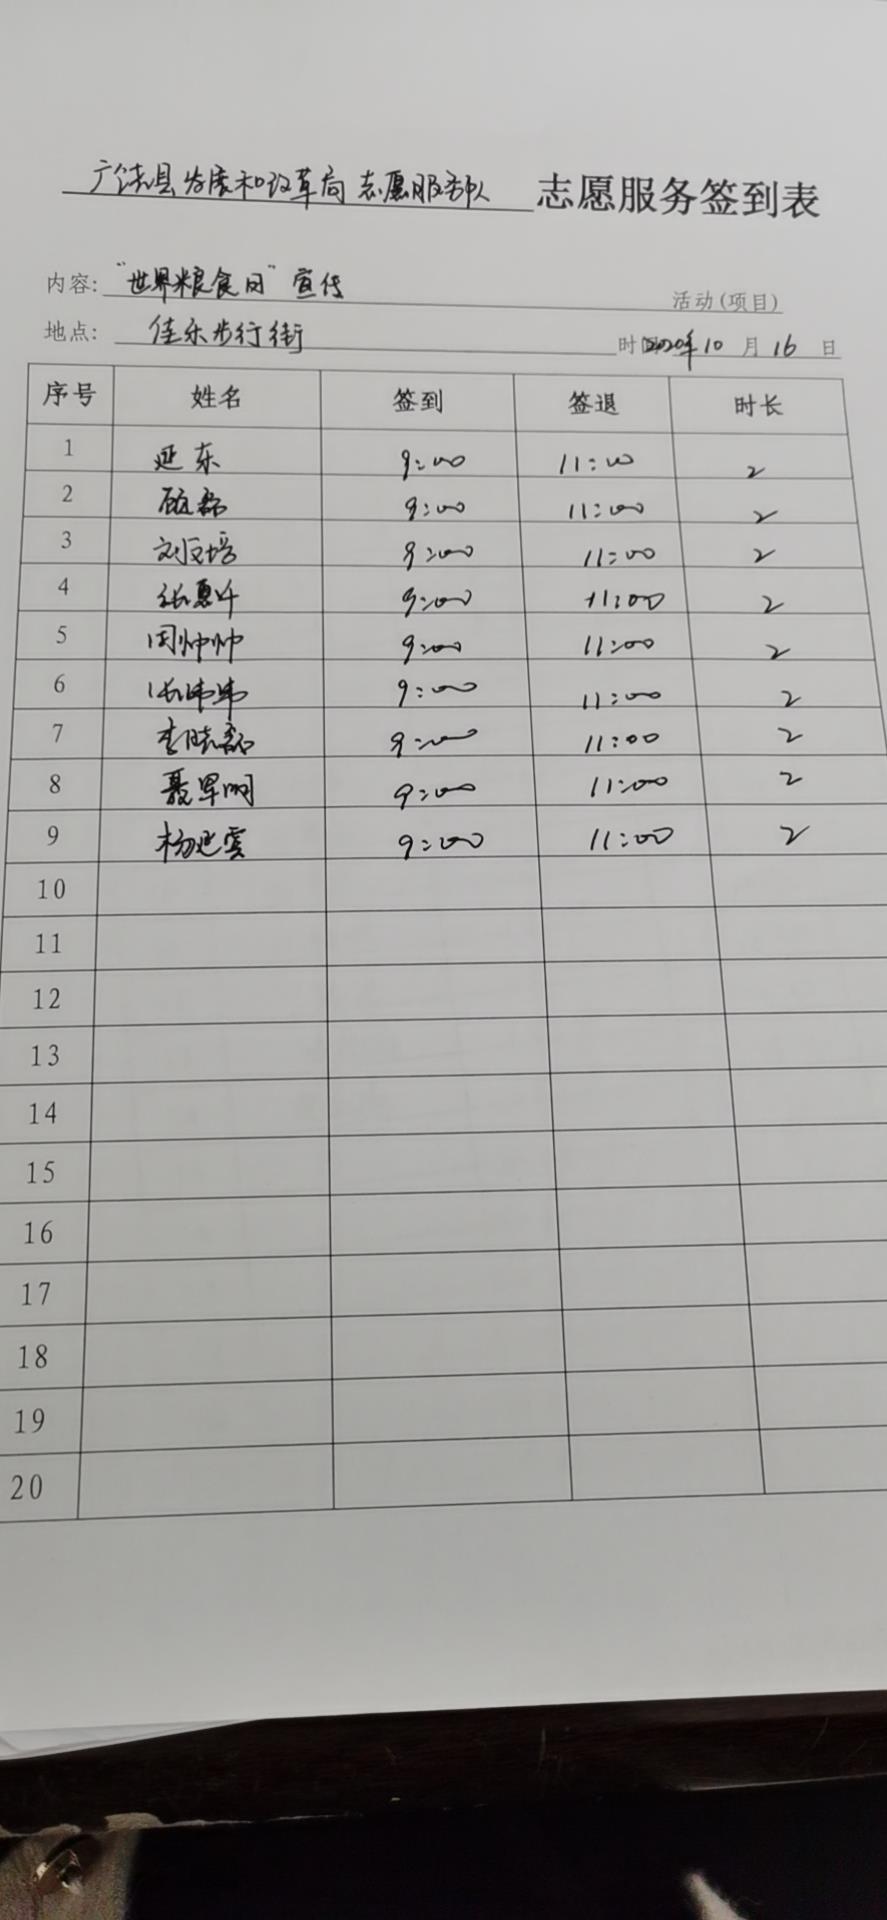 广饶县发展和改革局志愿服务队 志愿服务签到表
内容: "世界粮食日"宣传 活动(项目)
地点: 佳乐步行街 时 2020年10 月 16 日
序号 姓名 签到 签退 时长
1 延东 9:00 11:00 2
2 9:00 11:00 2
3 刘文培 9:00 11:00 2
4 张惠 9:00 11:00 2
5 周帅帅 9:00 11:00 2
6 张玮玮 9:00 11:00 2
7 李晓磊 9:00 11:00 2
8 聂早明 9:00 11:00 2
9 杨延云 9:00 11:00 2
10
11
12
13
14
15
16
17
18
19
20